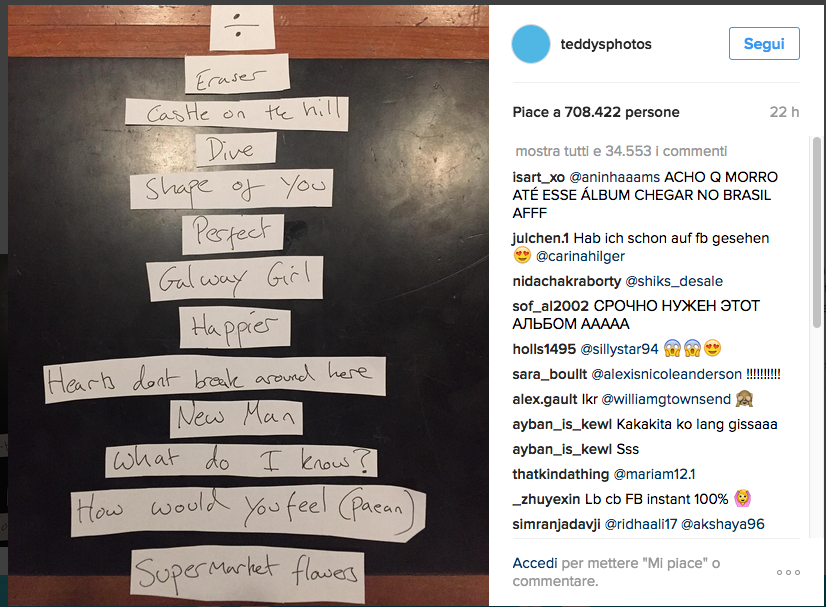 ÷
Eraser
Castle on the hill
Dive
Shape of You
Perfect
Galway Girl
Happier
Hearts dont break around here
New Man
What do I know?
How would you feel (Paean)
Supermarket flowers
teddysphotos
Segui
Piace a 708.422 persone
22 h
mostra tutti e 34.553 i commenti
isart_xo @aninhaaams ACHO Q MORRO
ATÉ ESSE ÁLBUM CHEGAR NO BRASIL
AFFF
julchen.1 Hab ich schon auf fb gesehen
😍 @carinahilger
nidachakraborty @shiks_desale
sof_al2002 СРОЧНО НУЖЕН ЭТОТ
АЛЬБОМ ААААА
holls1495 @sillystar94 😱😱😍
sara_boullt @alexisnicoleanderson !!!!!!!!!!
alex.gault Ikr @williamgtownsend 🙈
ayban_is_kewl Kakakita ko lang gissaaa
ayban_is_kewl Sss
thatkindathing @mariam12.1
_zhuyexin Lb cb FB instant 100% 🙆
simranjadavji @ridhaali17 @akshaya96
Accedi per mettere "Mi piace" o
commentare.